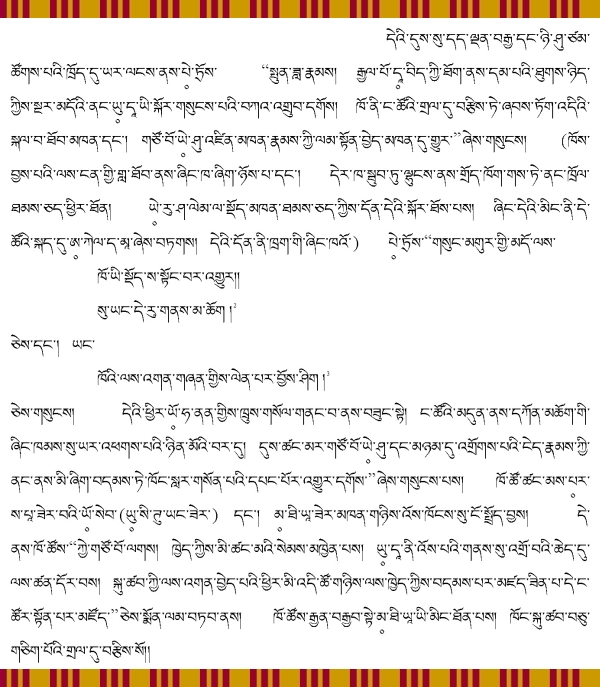 དེའི་དུས་སུ་དད་ལྡན་བརྒྱ་དང་ཉི་ཤུ་ཙམ་
ཚོགས་པའི་ཁྲོད་དུ་ཡར་ལངས་ནས་པེ་ཏྲོས་ “སྤུན་ཟླ་རྣམས། རྒྱལ་པོ་དཱ་བིད་ཀྱི་ཐོག་ནས་དམ་པའི་ཐུགས་ཉིད་
ཀྱིས་སྔར་མདོའི་ནང་ཡུ་དཱ་ཡི་སྐོར་གསུངས་པའི་བཀའ་འགྲུབ་དགོས། ཁོ་ནི་ང་ཚོའི་གྲལ་དུ་བརྩིས་ཏེ་ཞབས་ཏོག་འདིའི་
སྐལ་བ་ཐོབ་མཁན་དང་། གཙོ་བོ་ཡེ་ཤུ་འཛིན་མཁན་རྣམས་ཀྱི་ལམ་སྟོན་བྱེད་མཁན་དུ་གྱུར་”ཞེས་གསུངས། (ཁོས་
བྱས་པའི་ལས་ངན་གྱི་གླ་ཐོབ་ནས་ཞིང་ཁ་ཞིག་ཉོས་པ་དང་། དེར་ཁ་སྦུབ་ཏུ་ལྷུངས་ནས་གྲོད་ཁོག་གས་ཏེ་ནང་ཁྲོལ་
ཐམས་ཅད་ཕྱིར་ཐོན། ཡེ་རུ་ཤ་ལེམ་ལ་སྡོད་མཁན་ཐམས་ཅད་ཀྱིས་དོན་དེའི་སྐོར་ཐོས་པས། ཞིང་དེའི་མིང་ནི་དེ་
ཚོའི་སྐད་དུ་ཨ་ཀེལ་ད་མཱ་ཞེས་བཏགས། དེའི་དོན་ནི་ཁྲག་གི་ཞིང་ཁའོ་) པེ་ཏྲོས་“གསུང་མགུར་གྱི་མདོ་ལས་
ཁོ་ཡི་སྡོད་ས་སྟོང་བར་འགྱུར།།
སུ་ཡང་དེ་རུ་གནས་མ་ཆོག །²
ཅེས་དང་། ཡང་
ཁོའི་ལས་འགན་གཞན་གྱིས་ལེན་པར་བྱོས་ཤིག །³
ཅེས་གསུངས། དེའི་ཕྱིར་ཡོ་ཧ་ནན་གྱིས་ཁྲུས་གསོལ་གནང་བ་ནས་བཟུང་སྟེ། ང་ཚོའི་མདུན་ནས་དཀོན་མཆོག་གི་
ཞིང་ཁམས་སུ་ཡར་འཕགས་པའི་ཉིན་མོའི་བར་དུ། དུས་ཚང་མར་གཙོ་བོ་ཡེ་ཤུ་དང་མཉམ་དུ་འགྲོགས་པའི་ངེད་རྣམས་ཀྱི་
ནང་ནས་མི་ཞིག་བདམས་ཏེ་ཁོང་སླར་གསོན་པའི་དཔང་པོར་འགྱུར་དགོས་”ཞེས་གསུངས་པས། ཁོ་ཚོ་ཚང་མས་པར་
ས་པཱ་ཟེར་བའི་ཡོ་སེབ་(ཡུ་སི་ཏུ་ཡང་ཟེར་) དང་། མ་ཐི་ཡཱ་ཟེར་མཁན་གཉིས་འོས་ཁོངས་སུ་ངོ་སྤྲོད་བྱས། དེ་
ནས་ཁོ་ཚོས་“ཀྱེ་གཙོ་བོ་ལགས། ཁྱེད་ཀྱིས་མི་ཚང་མའི་སེམས་མཁྱེན་པས། ཡུ་དཱ་ནི་འོས་པའི་གནས་སུ་འགྲོ་བའི་ཆེད་དུ་
ལས་ཚན་དོར་བས། སྐུ་ཚབ་ཀྱི་ལས་འགན་བྱེད་པའི་ཕྱིར་མི་འདི་ཚོ་གཉིས་ལས་ཁྱེད་ཀྱིས་བདམས་པར་མཛད་ཟིན་པ་དེ་ང་
ཚོར་སྟོན་པར་མཛོད་”ཅེས་སྨོན་ལམ་བཏབ་ནས། ཁོ་ཚོས་རྒྱན་བརྒྱབ་སྟེ་མ་ཐི་ཡཱ་ཡི་མིང་ཐོན་པས། ཁོང་སྐུ་ཚབ་བཅུ་
གཅིག་པོའི་གྲལ་དུ་བརྩིས་སོ།།